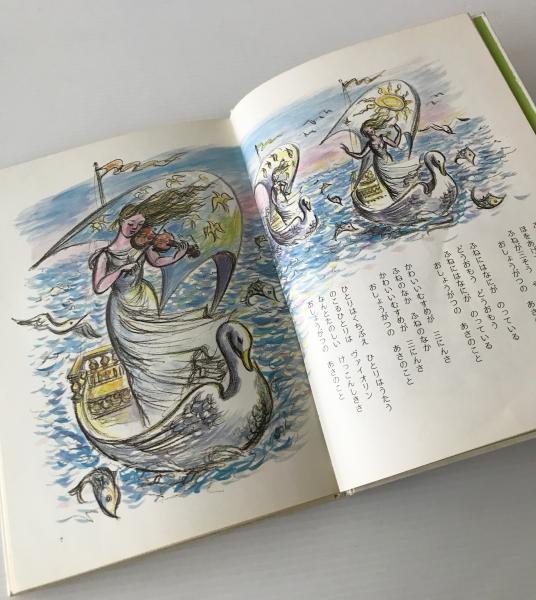 ふねが三そう
おしょうがつの あさ
ふねにはなにが のっている
どうおもう どうおもう
ふねにはなにが のっている
おしょうがつの あさのこと
かわいいむすめが 三にんさ
ふねのなか ふねのなか
かわいいむすめが 三にんさ
おしょうがつの あさのこと
ひとりはくちぶえ ひとりはうたう
のこるひとりは ヴァイオリン
なんとたのしい けっこんしきさ
おしょうがつの あさのこと